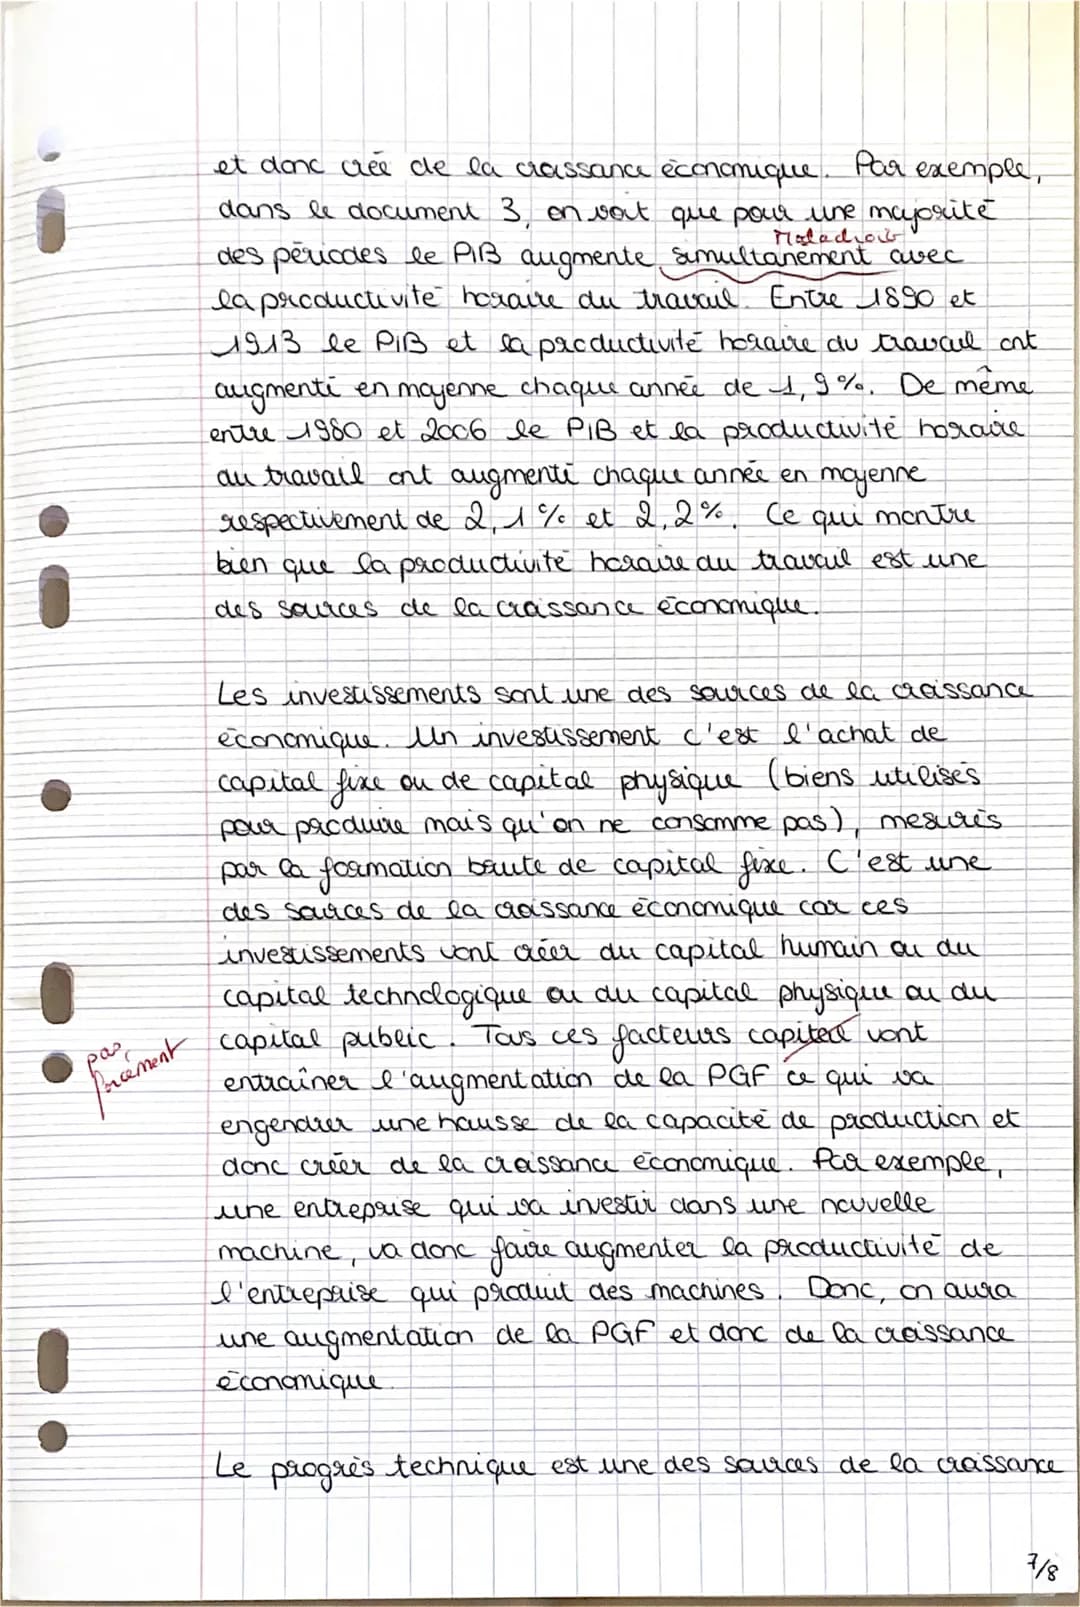 et donc crée de la croissance économique. Par exemple,
dans le document 3, on voit que pour une majorité
Maladroit
des périodes le PIB augmente simultanément avec
la productivité horaire du travail. Entre 1890 et
1913 le PIB et la productivité horaire du travail ont
augmenté en moyenne chaque année de 1,9%. De même
entre 1980 et 2006 le PIB et la productivité horaire
du travail ont augmenté chaque année en moyenne
respectivement de 2,1% et 2,2%. Ce qui montre
bien que la productivité horaire du travail est une
des sources de la croissance économique.
Les investissements sont une des sources de la croissance
économique. Un investissement c'est l'achat de
capital fixe ou de capital physique (biens utilisés
pour produire mais qu'on ne consomme pas), mesurés
par la formation brute de capital fixe. C'est une
des sources de la croissance économique car ces
investissements vont créer du capital humain ou du
capital technologique ou du capital physique ou du
capital public. Tous ces facteurs capital vont
pas forcément
entraîner l'augmentation de la PGF ce qui va
engendrer une hausse de la capacité de production et
donc créer de la croissance économique. Par exemple,
une entreprise qui va investir dans une nouvelle
machine, va donc faire augmenter la productivité de
l'entreprise qui produit des machines. Donc, on aura
une augmentation de la PGF et donc de la croissance
économique.
Le progrès technique est une des sources de la croissance
7/8